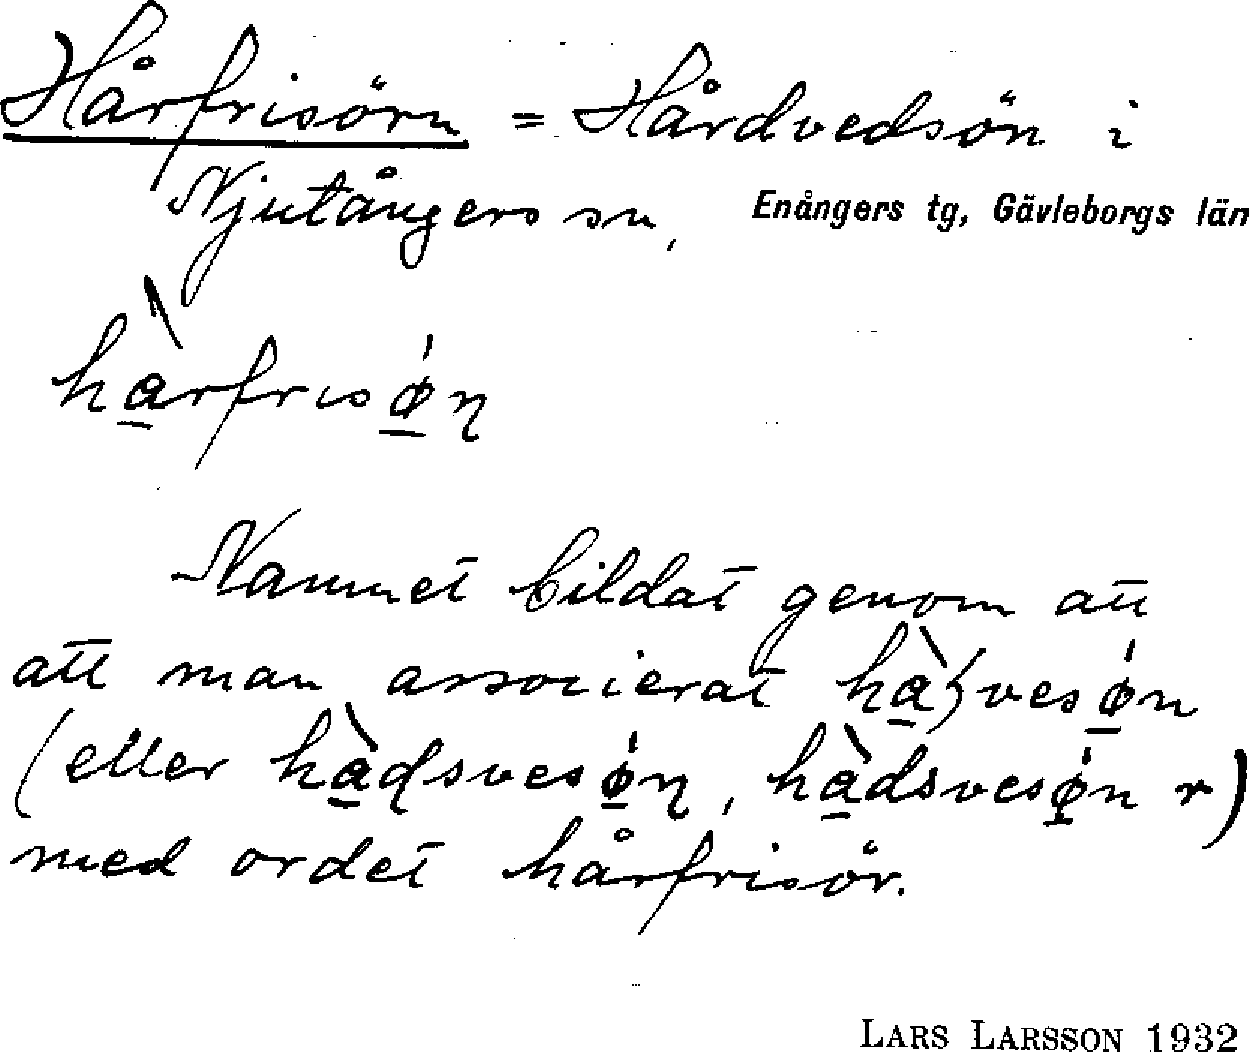 Hårfrisörn = Hårdvedsön i
Njutångers sn, Enångers tg, Gävleborgs län
hàrfrisǿn
Namnet bildat genom att
att man associerat
(eller hàdsvesǿn, hàdsvesǿn r)
med ordet hårfrisör.
LARS LARSSON 1932